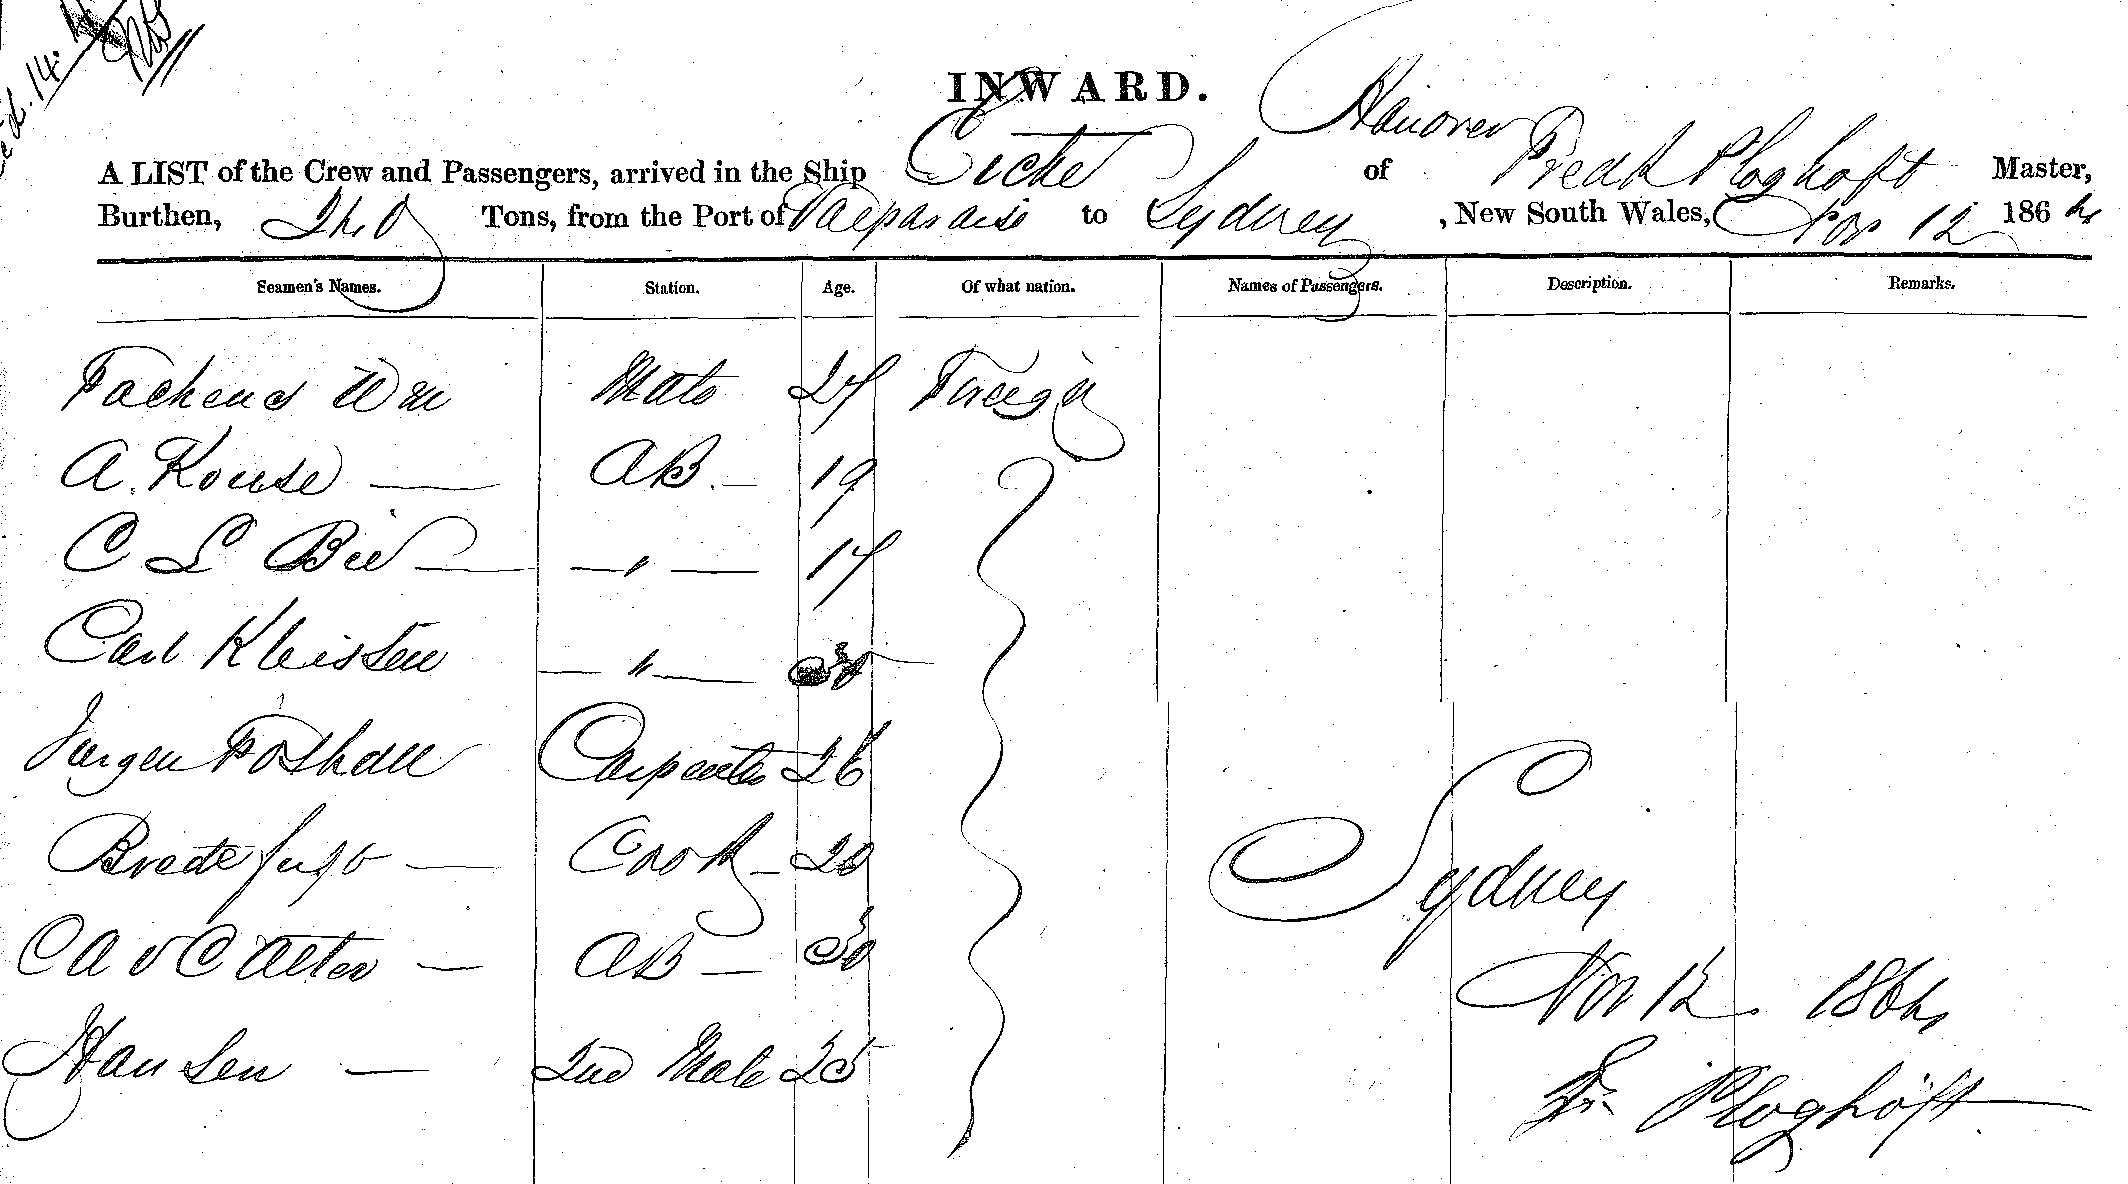 INWARD.
Hanover
A LIST of the Crew and Passengers, arrived in the Ship Eiche of Fredk Ploghoft Master,
Burthen, Tons, from the Port of Valparaiso to Sydney, New South Wales, Nov 12 1864
Seamen's Names. Station. Age. Of what nation. Names of Passengers. Description. Remarks.
Wm Mate 27 Foreign
A. Kouse — AB. — 19
C L — " — 17
Carl Kleisten — " — 30
Jurgen Carpenter 26
Cook — 20
— AB — 30
Hansen — 2nd Mate 25
Sydney
Nov 12. 1864
Fr. Ploghöft